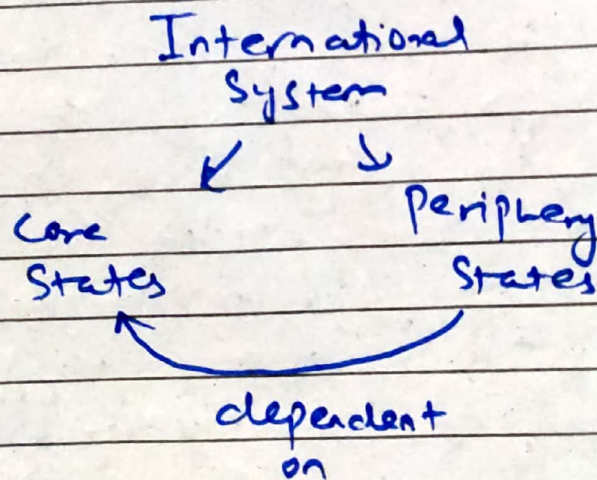 International
System
Core
States
Periphery
States
dependent
on